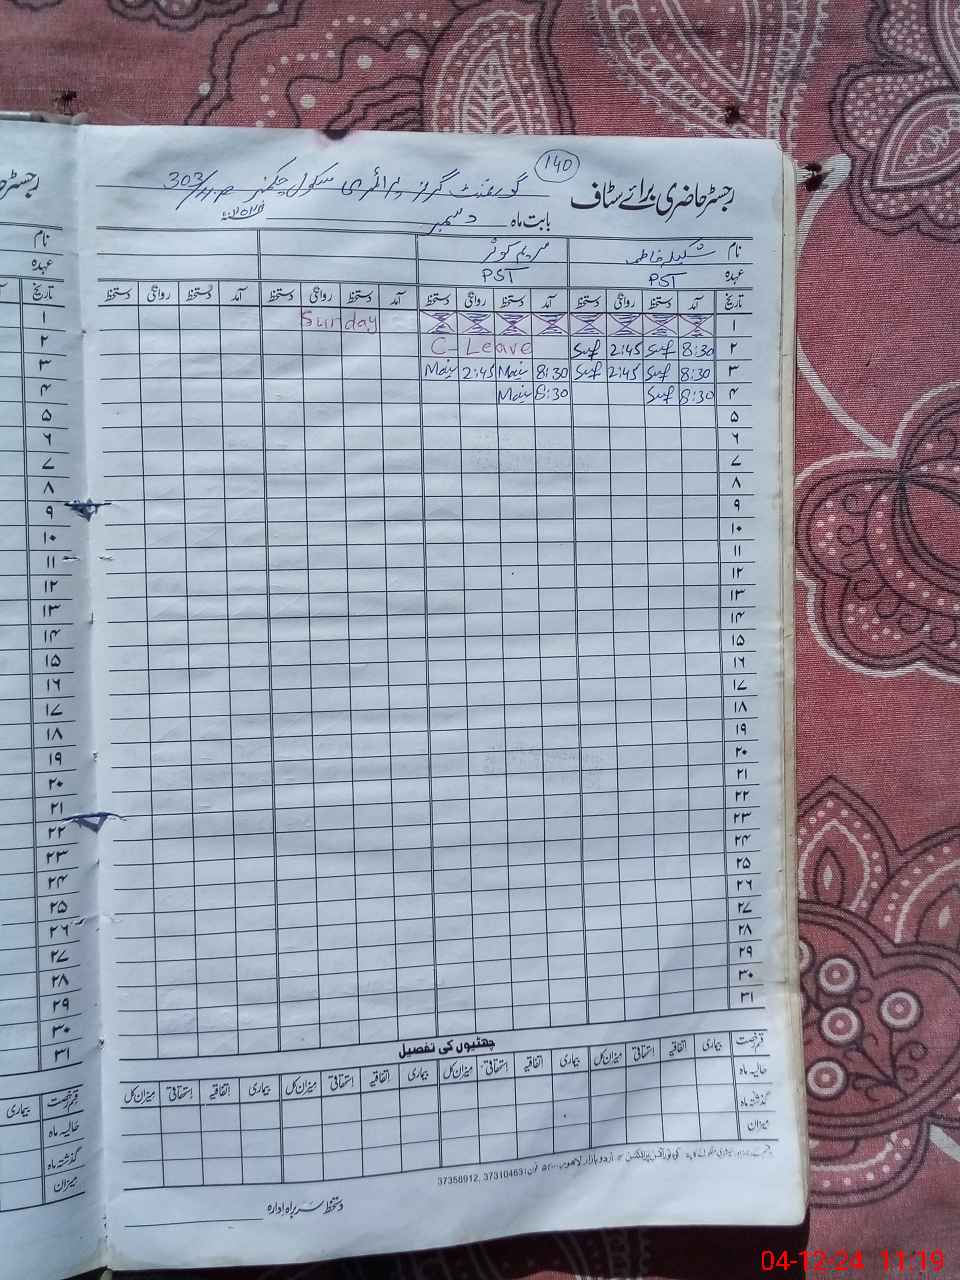 140
رجسٹر حاضری برائے سٹاف
گورنمنٹ گرلز پرائمری سکول چک نمبر 303/
بابت ماہ دسمبر
نام شکیلہ فاطمہ مریم کوثر
عہدہ PST PST
تاریخ آمد دستخط روانگی دستخط آمد دستخط روانگی دستخط آمد دستخط روانگی دستخط آمد دستخط روانگی دستخط
۱ Sunday
۲ 8:30 2:45 C-Leave
۳ 8:30 2:45 8:30 2:45
۴ 8:30 8:30
۵
۶
۷
۸
۹
۱۰
۱۱
۱۲
۱۳
۱۴
۱۵
۱۶
۱۷
۱۸
۱۹
۲۰
۲۱
۲۲
۲۳
۲۴
۲۵
۲۶
۲۷
۲۸
۲۹
۳۰
۳۱
چھٹیوں کی تفصیل
قسم رخصت بیماری اتفاقیہ استحقاقی میزان کل بیماری اتفاقیہ استحقاقی میزان کل بیماری اتفاقیہ استحقاقی میزان کل بیماری اتفاقیہ استحقاقی میزان کل
حالیہ ماہ
گذشتہ ماہ
میزان
اردو بازار لاہور فون: 37310463, 37358912
دستخط سربراہ ادارہ
رجسٹر
نام
عہدہ
تاریخ
۱
۲
۳
۴
۵
۶
۷
۸
۹
۱۰
۱۱
۱۲
۱۳
۱۴
۱۵
۱۶
۱۷
۱۸
۱۹
۲۰
۲۱
۲۲
۲۳
۲۴
۲۵
۲۶
۲۷
۲۸
۲۹
۳۰
۳۱
قسم رخصت بیماری
حالیہ ماہ
گذشتہ ماہ
میزان
04-12-24 11:19